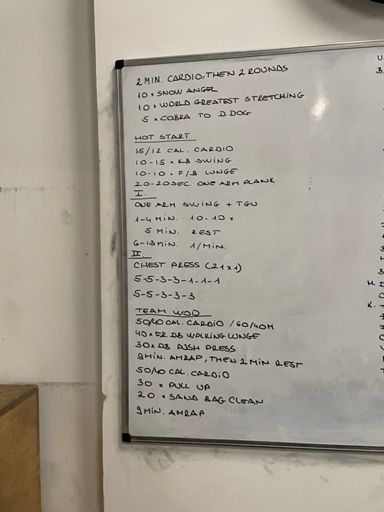 2 MIN. CARDIO, THEN 2 ROUNDS
10 x SNOW ANGEL
10 x WORLD GREATEST STRETCHING
5 x COBRA TO D.DOG
HOT START
15/12 CAL. CARDIO
10-15 x KB SWING
10-10 x F/B LUNGE
20-20SEC. ONE ARM PLANK
I.
ONE ARM SWING + TGU
1-4 MIN. 10-10 x
5 MIN. REST
6-13MIN. 1/MIN.
II
CHEST PRESS (21x1)
5-5-3-3-1-1-1
5-5-3-3-3
TEAM WOD
50/40 CAL. CARDIO /60/40M
40 x FR DB WALKING LUNGE
30 x DB PUSH PRESS
9MIN. AMRAP, THEN 2 MIN REST
50/40 CAL. CARDIO
30 x PULL UP
20 x SAND BAG CLEAN
9MIN. AMRAP